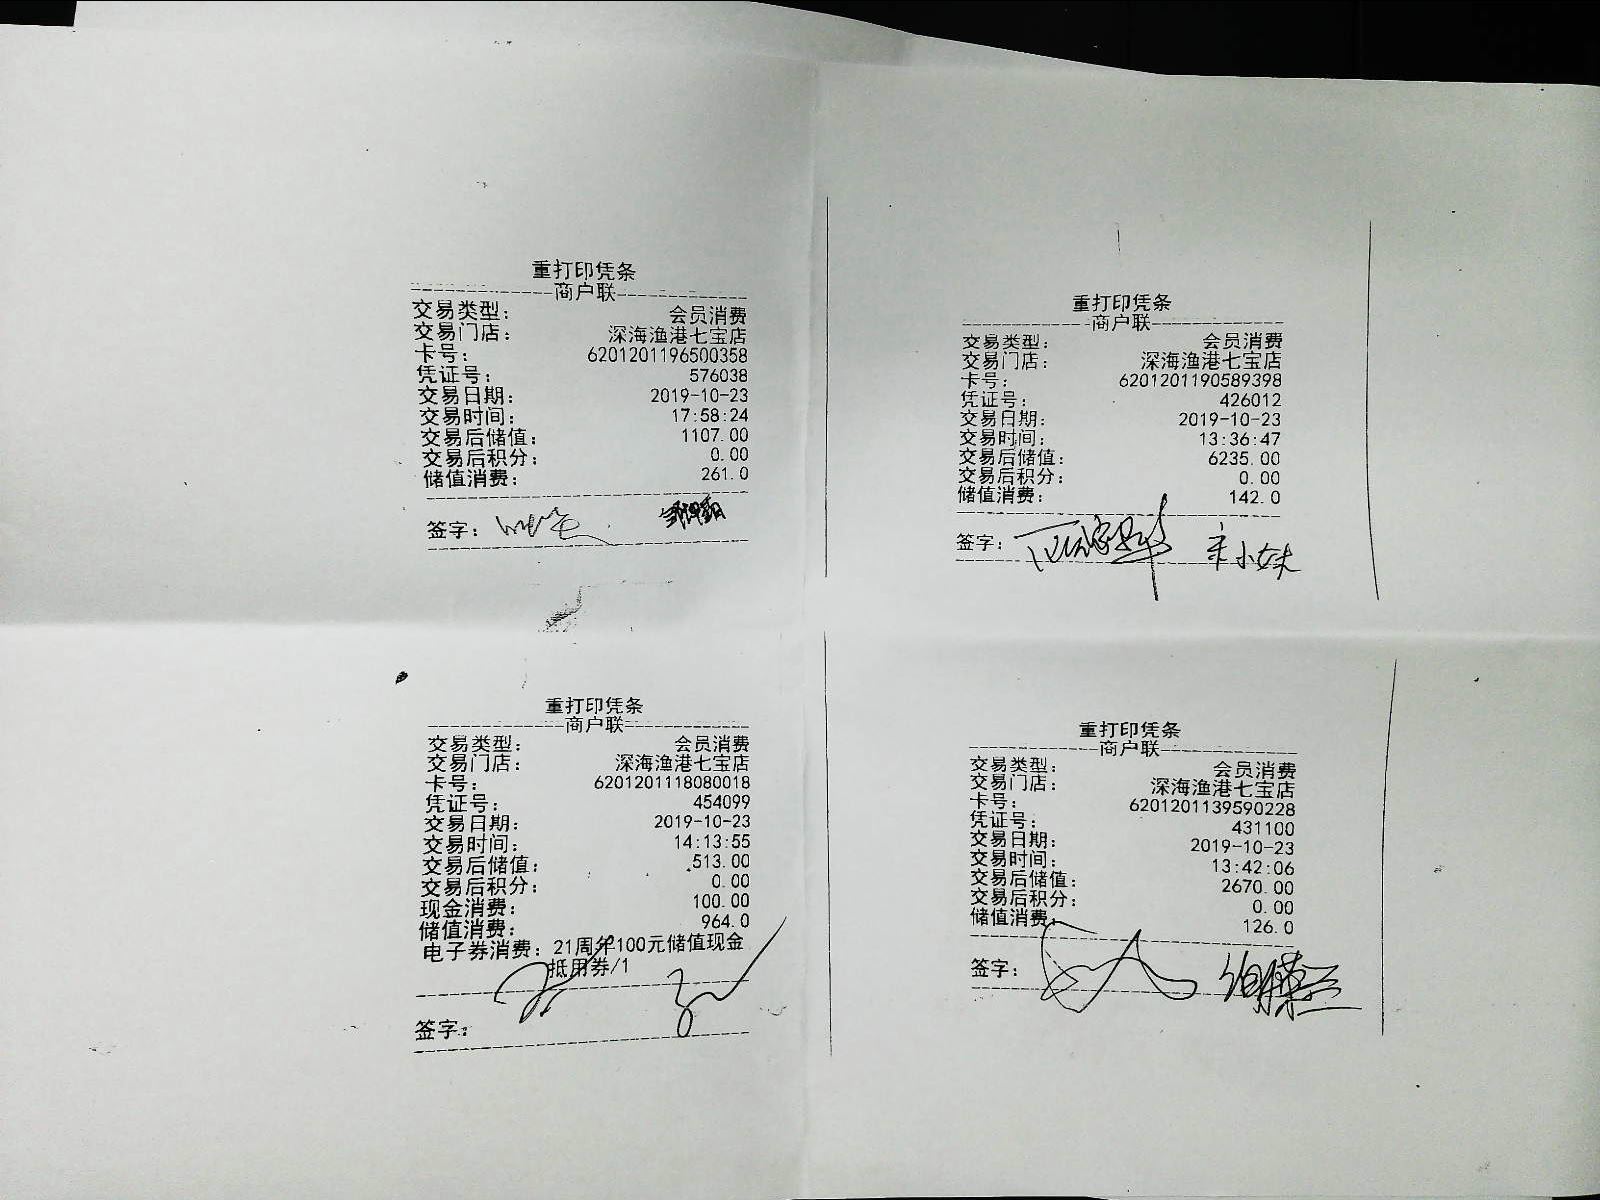 重打印凭条
商户联
交易类型： 会员消费
交易门店： 深海渔港七宝店
卡号： 6201201196500358
凭证号： 576038
交易日期： 2019-10-23
交易时间： 17:58:24
交易后储值： 1107.00
交易后积分： 0.00
储值消费： 261.0
签字：
重打印凭条
商户联
交易类型： 会员消费
交易门店： 深海渔港七宝店
卡号： 6201201190589398
凭证号： 426012
交易日期： 2019-10-23
交易时间： 13:36:47
交易后储值： 6235.00
交易后积分： 0.00
储值消费： 142.0
签字： 宋小妹
重打印凭条
商户联
交易类型： 会员消费
交易门店： 深海渔港七宝店
卡号： 6201201118080018
凭证号： 454099
交易日期： 2019-10-23
交易时间： 14:13:55
交易后储值： 513.00
交易后积分： 0.00
现金消费： 100.00
储值消费： 964.0
电子券消费：21周年100元储值现金
抵用券/1
签字：
重打印凭条
商户联
交易类型： 会员消费
交易门店： 深海渔港七宝店
卡号： 6201201139590228
凭证号： 431100
交易日期： 2019-10-23
交易时间： 13:42:06
交易后储值： 2670.00
交易后积分： 0.00
储值消费： 126.0
签字：